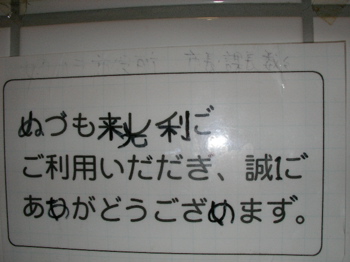 ぬづも来光し利ご
ご利用いだだぎ、誠1ご
ああがどうござめまず。